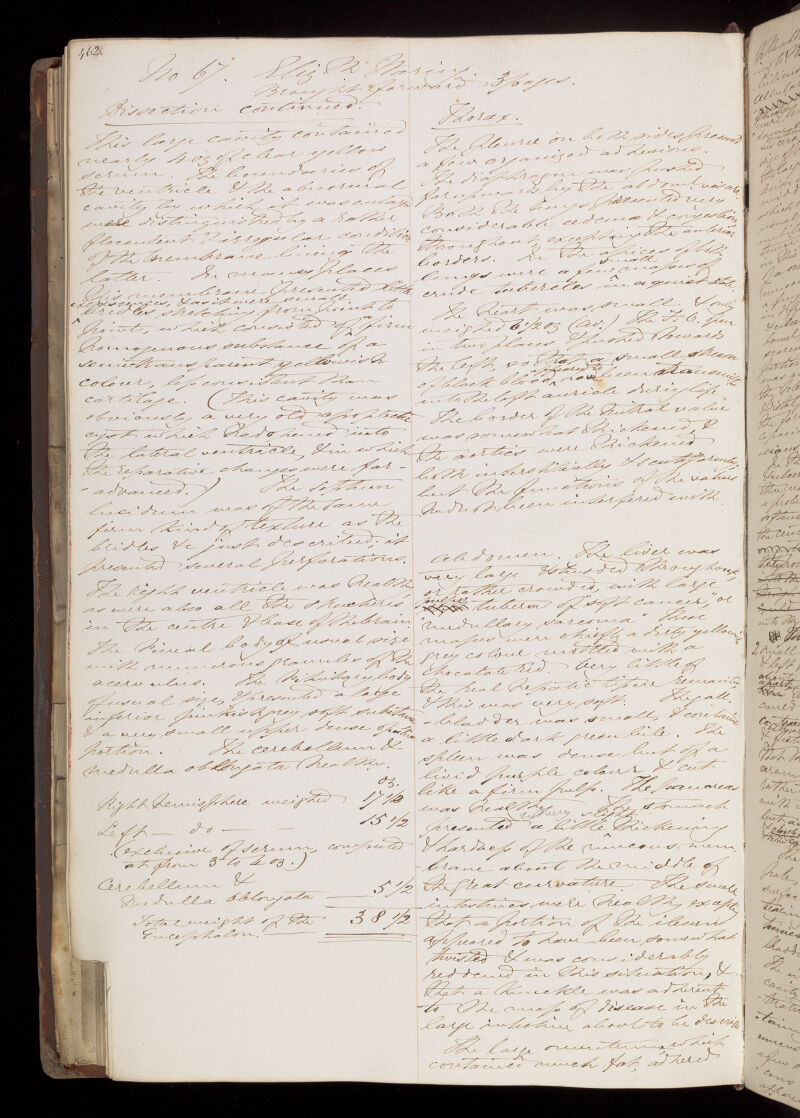 462.
No 67. Eliz th
Brought forward 3 pages.
Dissection continued.
This large cavity contained
nearly 4 oz of clear yellow
serum. The boundaries of
the ventricle & the abnormal
cavity by which it was
were distinguished by a rather
flocculent & irregular condition
of the membrane lining the
latter. In many places
this membrane presented little
excrescences, & as it were small
bridles stretching from point to
point, which consisted of a firm
homogenous substance of a
semitransparent yellowish
colour, less consistent than
cartilage. (This cavity was
obviously a very old apoplectic
cyst which had opened into
the lateral ventricle, & in which
the reparative changes were far-
advanced.) The septum
lucidum was of the same
firm kind of texture as the
bridles &c just described; it
presented several perforations.
The right ventricle was healthy
as were also all the structures
in the centre & base of the brain.
The Pineal body of usual size
with numerous granules of the
acervulus. The Pituitary body
of usual size, & presented a large
inferior pinkish grey soft substance
& a very small upper dense
portion. The cerebellum &
medulla oblongata healthy.
oz.
Right hemisphere weighed 17 1/2
Left — do — 15 1/2
(exclusive of serum computed
at from 3 to 4 oz.)
Cerebellum &
Medulla oblongata 5 1/2
Total weight of the
Encephalon. 38 1/2
Thorax.
The Pleurae on both sides presented
a few organized adhesions.
The diaphragm was pushed
far upwards by the abdominal viscera.
Both the lungs presented very
considerable oedema & congestion
throughout, excepting the anterior
borders. In the apices of both
lungs were a few small masses of
crude tubercles in a quiescent state.
The heart was small & only
weighed 6 1/2 oz (av.) The F.O. open
in two places & pushed towards
the left, so that a small stream
of black blood appeared to have been transmitted
into the left auricle during life.
The border of the mitral valve
was somewhat thickened, &
the aortics were thickened
both interstitially &
but the functions of the valves
had not been interfered with.
Abdomen. The liver was
very large & studded throughout,
or rather crowded, with large
masses tubera of soft cancer, or
"medullary sarcoma". These
masses were chiefly a dirty yellowish
grey colour mottled with a
chocolate red. Very little of
the real hepatic tissue remained
& this was very soft. The gall
-bladder was small, & contained
a little dark green bile. The
spleen was dense but of a
livid purple colour & cut
like a firm pulp. The pancreas
was healthy. The stomach
presented (not very slight) a little thickening
& hardness of the mucous mem
brane about the middle of
the great curvature. The small
intestines were healthy except
that a portion of the ileum
appeared to have been somewhat
twisted & was considerably
reddened in this situation, &
that a knuckle was adherent
to the mass of disease in the
large intestine about to be described
The large omentum which
contained much fat, adhered